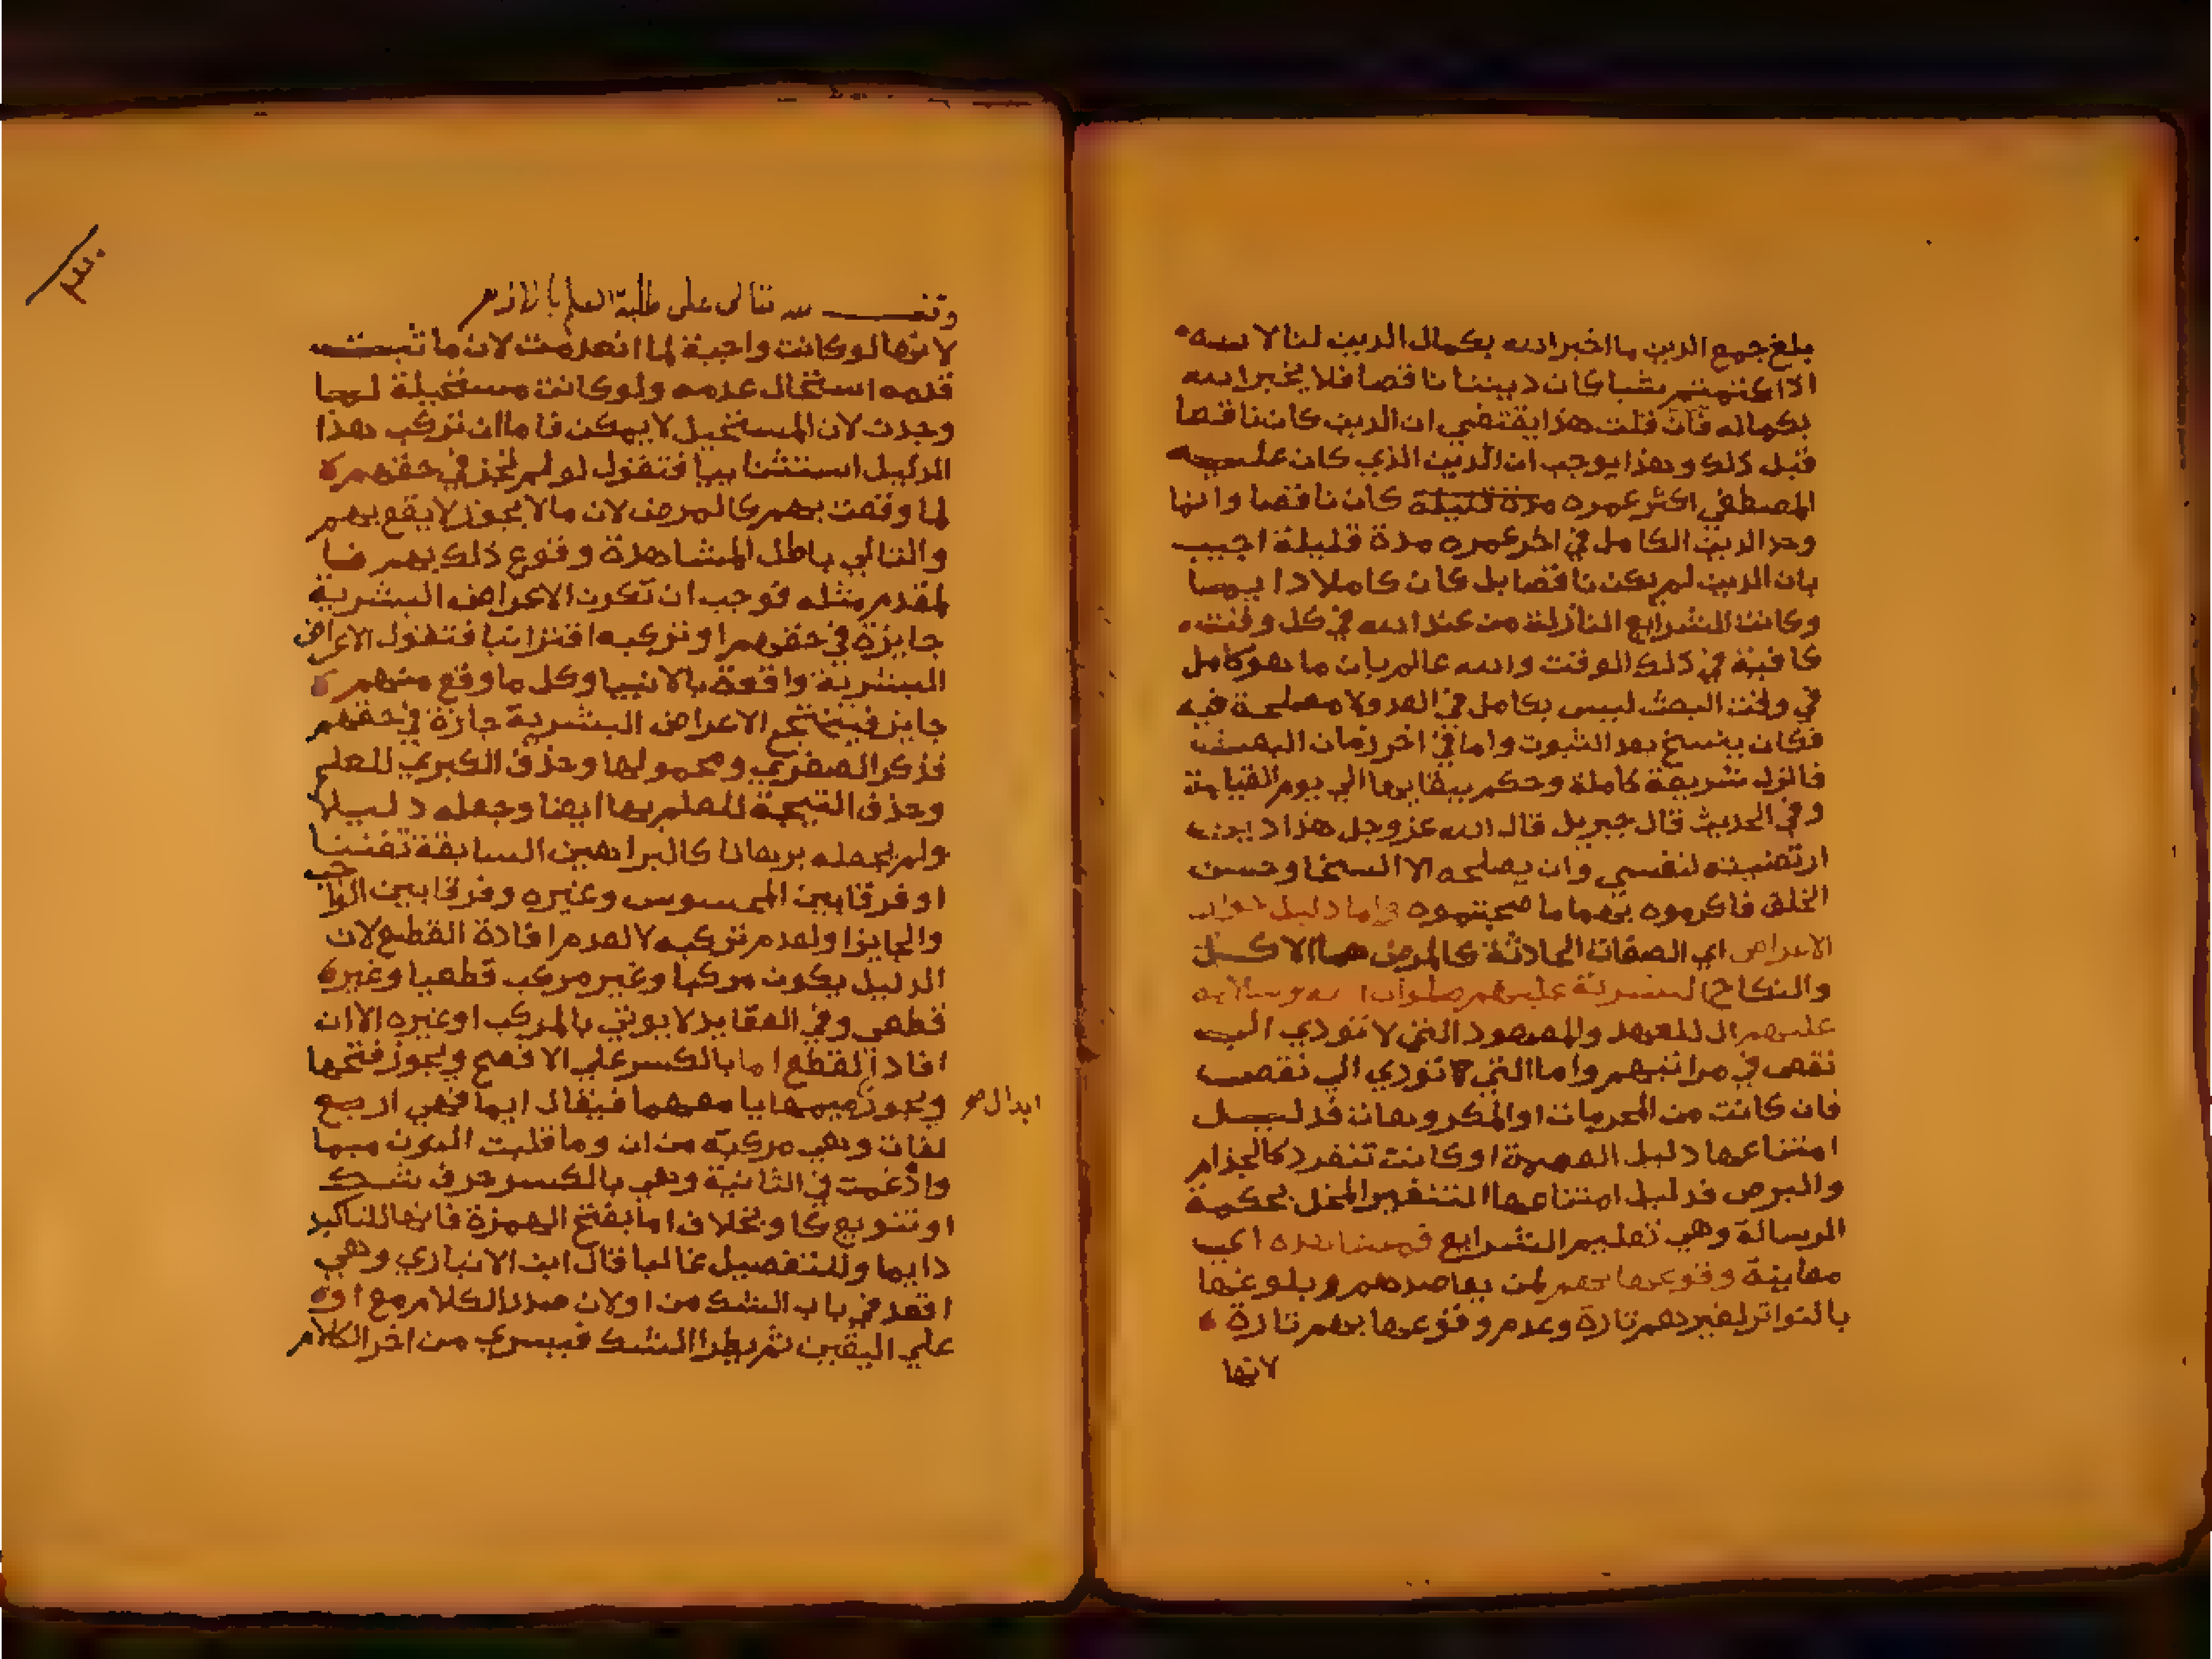 بلغ جمع الدين ما اخبر الله بكمال الدين لنا لانه
اذا كتمتم شيا كان ديننا ناقصا فلا يخبر الله
بكماله فان قلت هذا يقتضي ان الدين كان ناقصا
قبل ذلك وهذا يوجب ان الدين الذي كان عليه
المصطفي اكثر عمره مدة قليلة كان ناقصا وانما
وجد الدين الكامل في اخر عمره مدة قليلة اجيب
بان الدين لم يكن ناقصا بل كان كاملا دايما
وكانت الشرايع النازلة من عند الله في كل وقت
كافية في ذلك الوقت والله عالم بان ما هو كامل
في وقت البعث ليس بكامل في الغد ولا مصلحة فيه
فكان ينسخ بعد الثبوت واما في اخر زمان البعث
فانزل شريعة كاملة وحكم ببقايها الي يوم القيامة
وفي الحديث قال جبريل قال الله عز وجل هذا دين
ارتضيته لنفسي ولن يصلحه الا السخا وحسن
الخلق فاكرموه بهما ما صحبتموه واما دليل جواز
الاعراض اي الصفات الحادثة كالمرض والاكل
والنكاح البشرية عليهم صلوات الله وسلامه
عليهم ال للعهد والمعهود التي لا تؤدي الي
نقص في مراتبهم واما التي تؤدي الي نقص
فان كانت من المحرمات او المكروهات فدليل
امتناعها دليل العصمة او كانت تنفر كالجذام
والبرص فدليل امتناعها التنفير المخل بحكمة
الرسالة وهي تعليم الشرايع فمشاهدة اي
معاينة وقوعها بهم لمن يعاصرهم وبلوغها
بالتواتر لغيرهم تارة وعدم وقوعها بهم تارة
لانها
تعالى على طلبة العلم بالازهر
لانها لو كانت واجبة لما انعدمت لان ما ثبت
قدمه استحال عدمه ولو كانت مستحيلة لما
وجدت لان المستحيل لا يمكن فاما ان تركب هذا
الدليل استثنائيا فتقول لو لم تجز في حقهم
لما وقعت بهم كالمرض لان ما لا يجوز لا يقع بهم
والتالي باطل لمشاهدة وقوع ذلك بهم فا
لمقدم مثله فوجب ان تكون الاعراض البشرية
جايزة في حقهم او تركبه اقترانيا فتقول الاعراض
البشرية واقعة بالانبيا وكل ما وقع منهم
جايز فينتج الاعراض البشرية جايزة في حقهم
فذكر الصغري ومحمولها وحذف الكبري للعلم
وحذف النتيجة للعلم بها ايضا وجعله دليلا
ولم يجعله برهانا كالبراهين السابقة تفننا
او فرقا بين المحسوس وغيره وفرقا بين الواجب
والجايز او لعدم تركبه لا لعدم افادة القطع لان
الدليل يكون مركبا وغير مركب قطعيا وغير
قطعي وفي العقايد لا يوتي بالمركب او غيره الا ان
افاد القطع اما بالكسر علي الافصح ويجوز فتحها
ويجوز ابدال ميمها يا معهما فيقال ايما فهي اربع
لغات وهي مركبة من ان وما قلبت النون ميما
وادغمت في الثانية وهي بالكسر حرف شك
او تنويع كاو بخلاف اما بفتح الهمزة فانها للتاكيد
دايما وللتفصيل غالبا قال ابن الانباري وهي
اقعد في باب الشك من او لان صدر الكلام مع او
علي اليقين ثم يطرا الشك فيسري من اخر الكلام